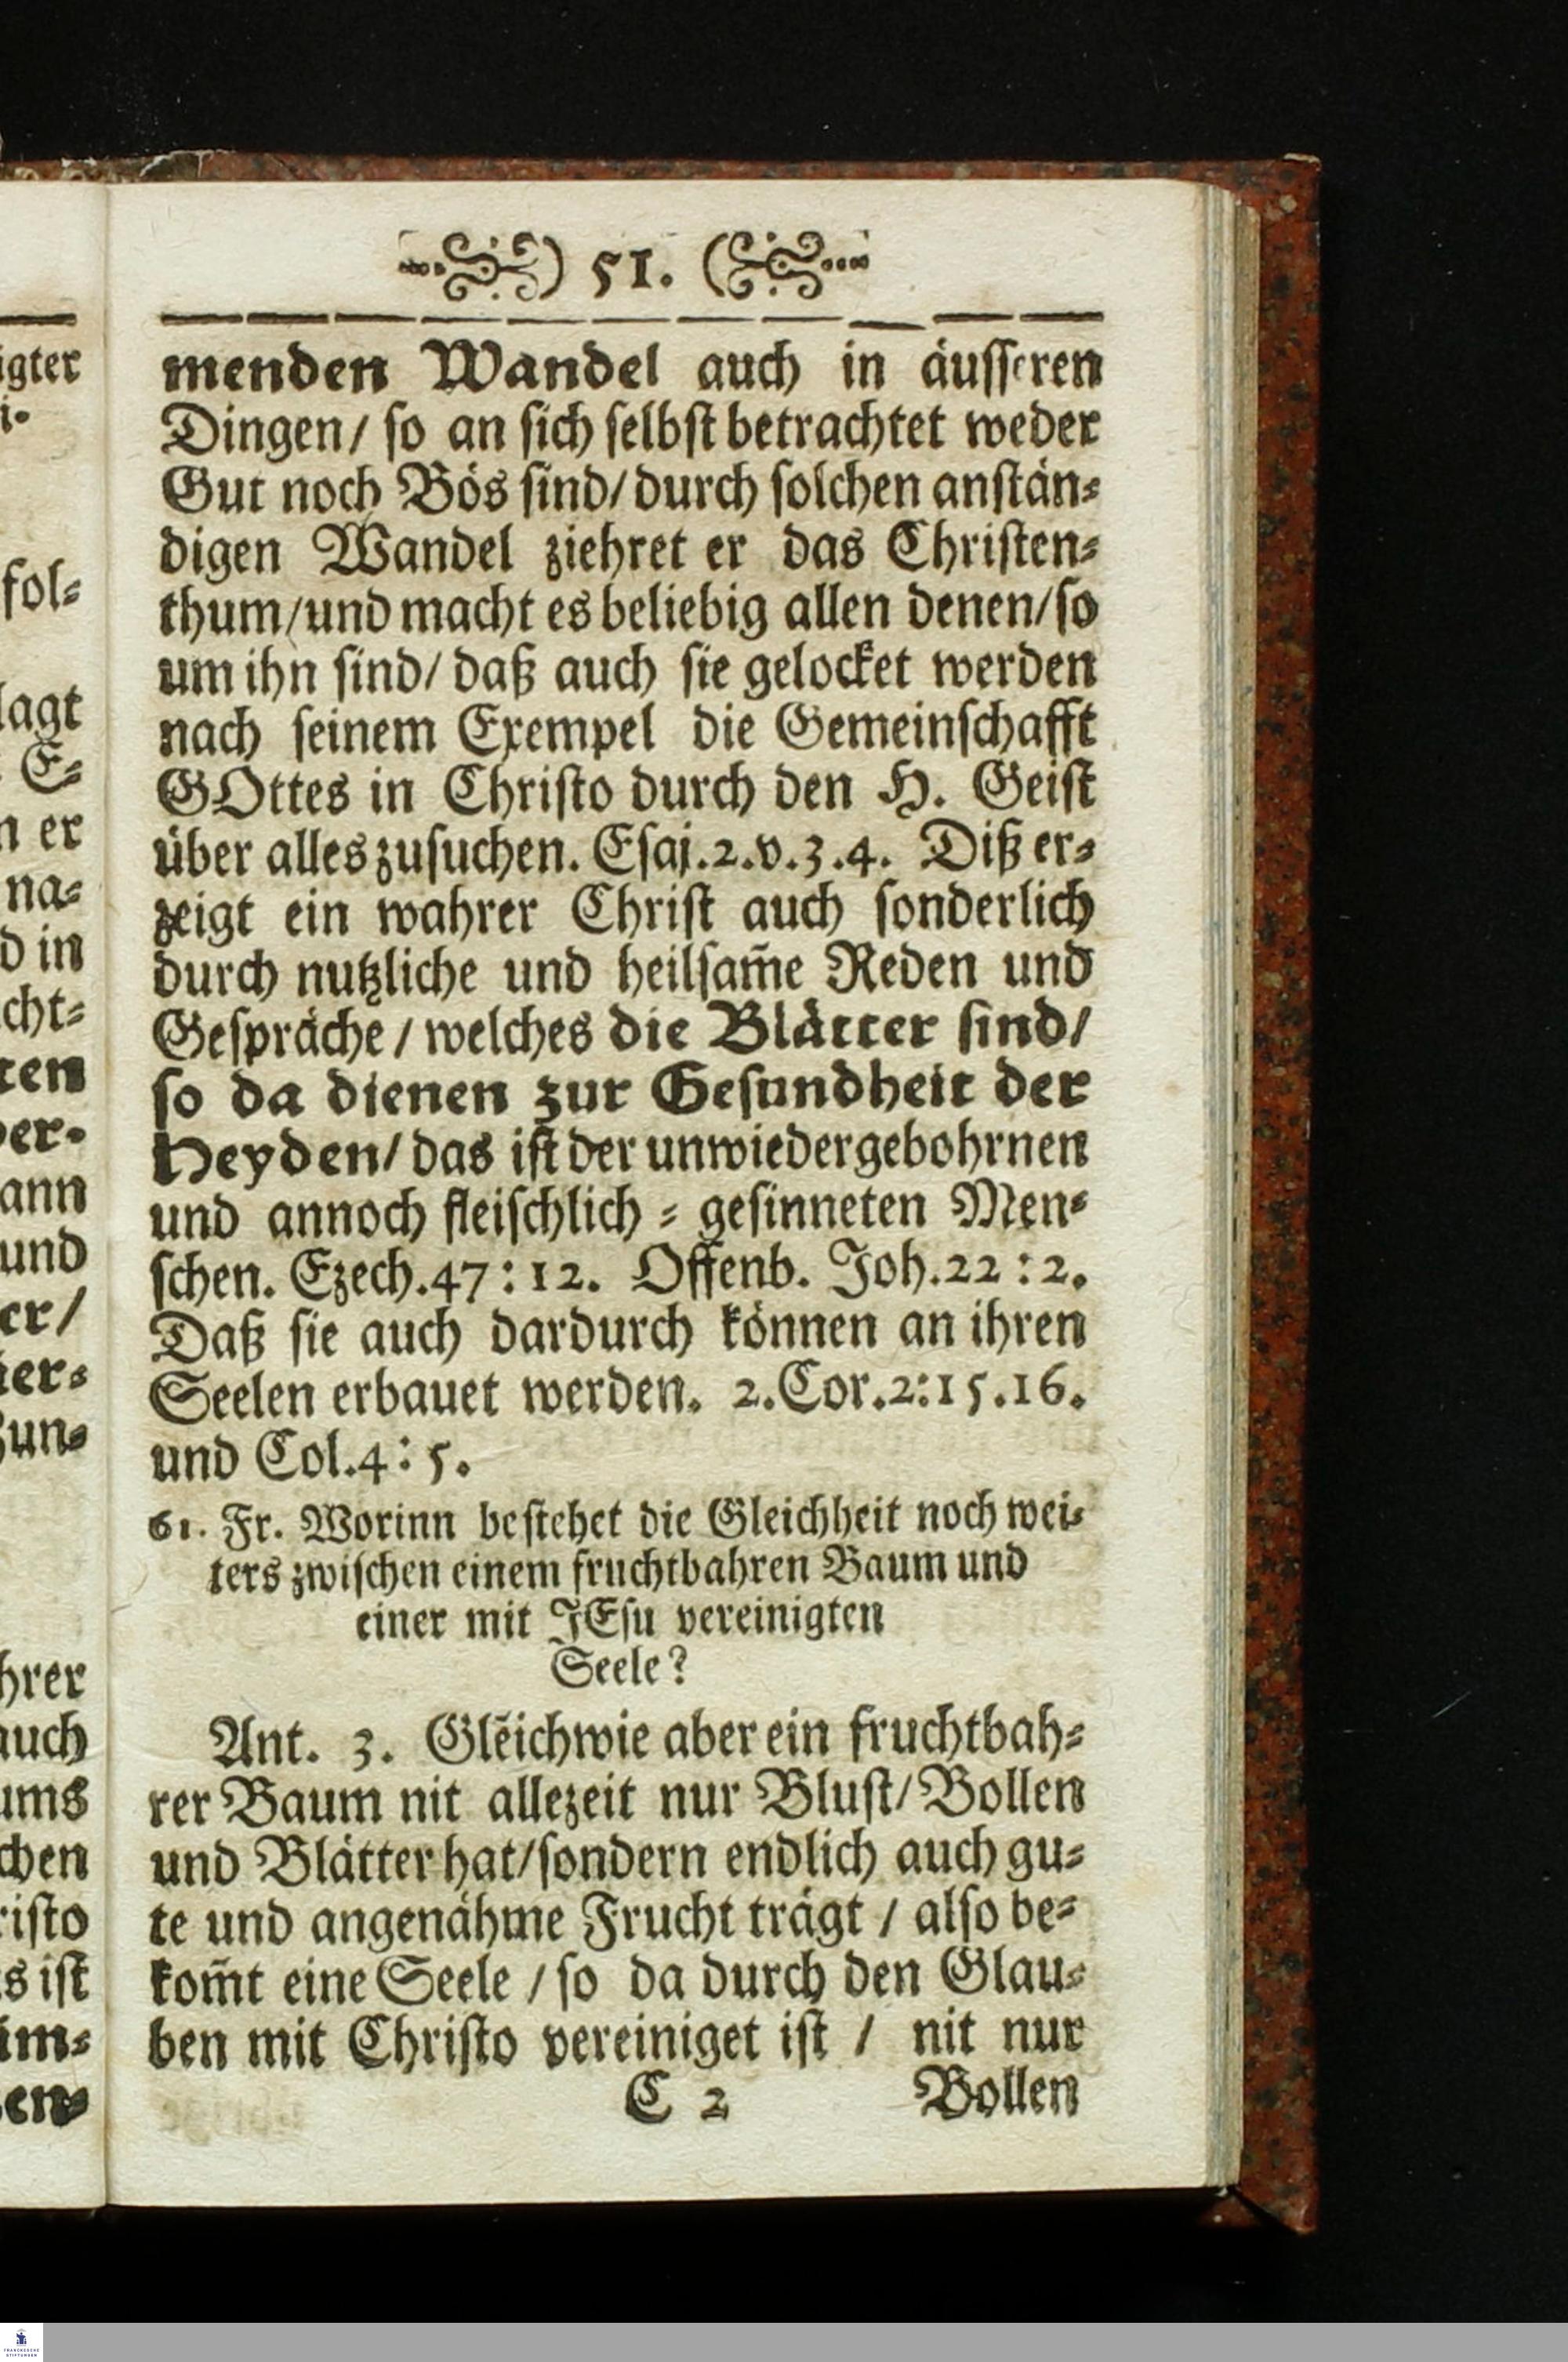 ) 51. (
menden Wandel auch in äusseren
Dingen/ so an sich selbst betrachtet weder
Gut noch Bös sind/ durch solchen anstän⸗
digen Wandel ziehret er das Christen⸗
thum/ und macht es beliebig allen denen/ so
um ihn sind/ daß auch sie gelocket werden
nach seinem Exempel die Gemeinschafft
GOttes in Christo durch den H. Geist
über alles zusuchen. Esaj. 2. v. 3. 4. Diß er⸗
zeigt ein wahrer Christ auch sonderlich
durch nutzliche und heilsam̃e Reden und
Gespräche / welches die Blätter sind/
so da dienen zur Gesundheit der
Heyden/ das ist der unwiedergebohrnen
und annoch fleischlich ⸗ gesinneten Men⸗
schen. Ezech. 47 : 12. Offenb. Joh. 22 : 2.
Daß sie auch dardurch können an ihren
Seelen erbauet werden. 2. Cor. 2: 15. 16.
und Col. 4 : 5.
61. Fr. Worinn bestehet die Gleichheit noch wei⸗
ters zwischen einem fruchtbahren Baum und
einer mit JEsu vereinigten
Seele?
Ant. 3. Gleichwie aber ein fruchtbah⸗
rer Baum nit allezeit nur Blust/ Bollen
und Blätter hat/ sondern endlich auch gu⸗
te und angenähme Frucht trägt / also be⸗
kom̃t eine Seele / so da durch den Glau⸗
ben mit Christo vereiniget ist / nit nur
C 2 Bollen